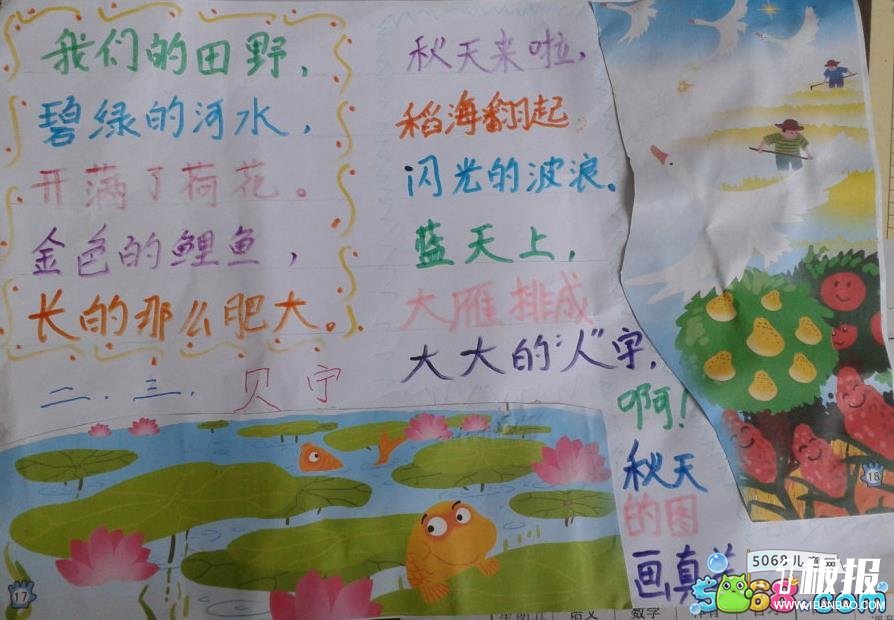 我们的田野，
碧绿的河水，
开满了荷花。
金色的鲤鱼，
长的那么肥大。
二．三．贝宁
秋天来啦，
稻海翻起
闪光的波浪。
蓝天上，
大雁排成
大大的“人”字，
啊！
秋天
的图
画真
17
18
5068儿
板报
5068.com
WWW.1BANBAO.COM
语文
数学